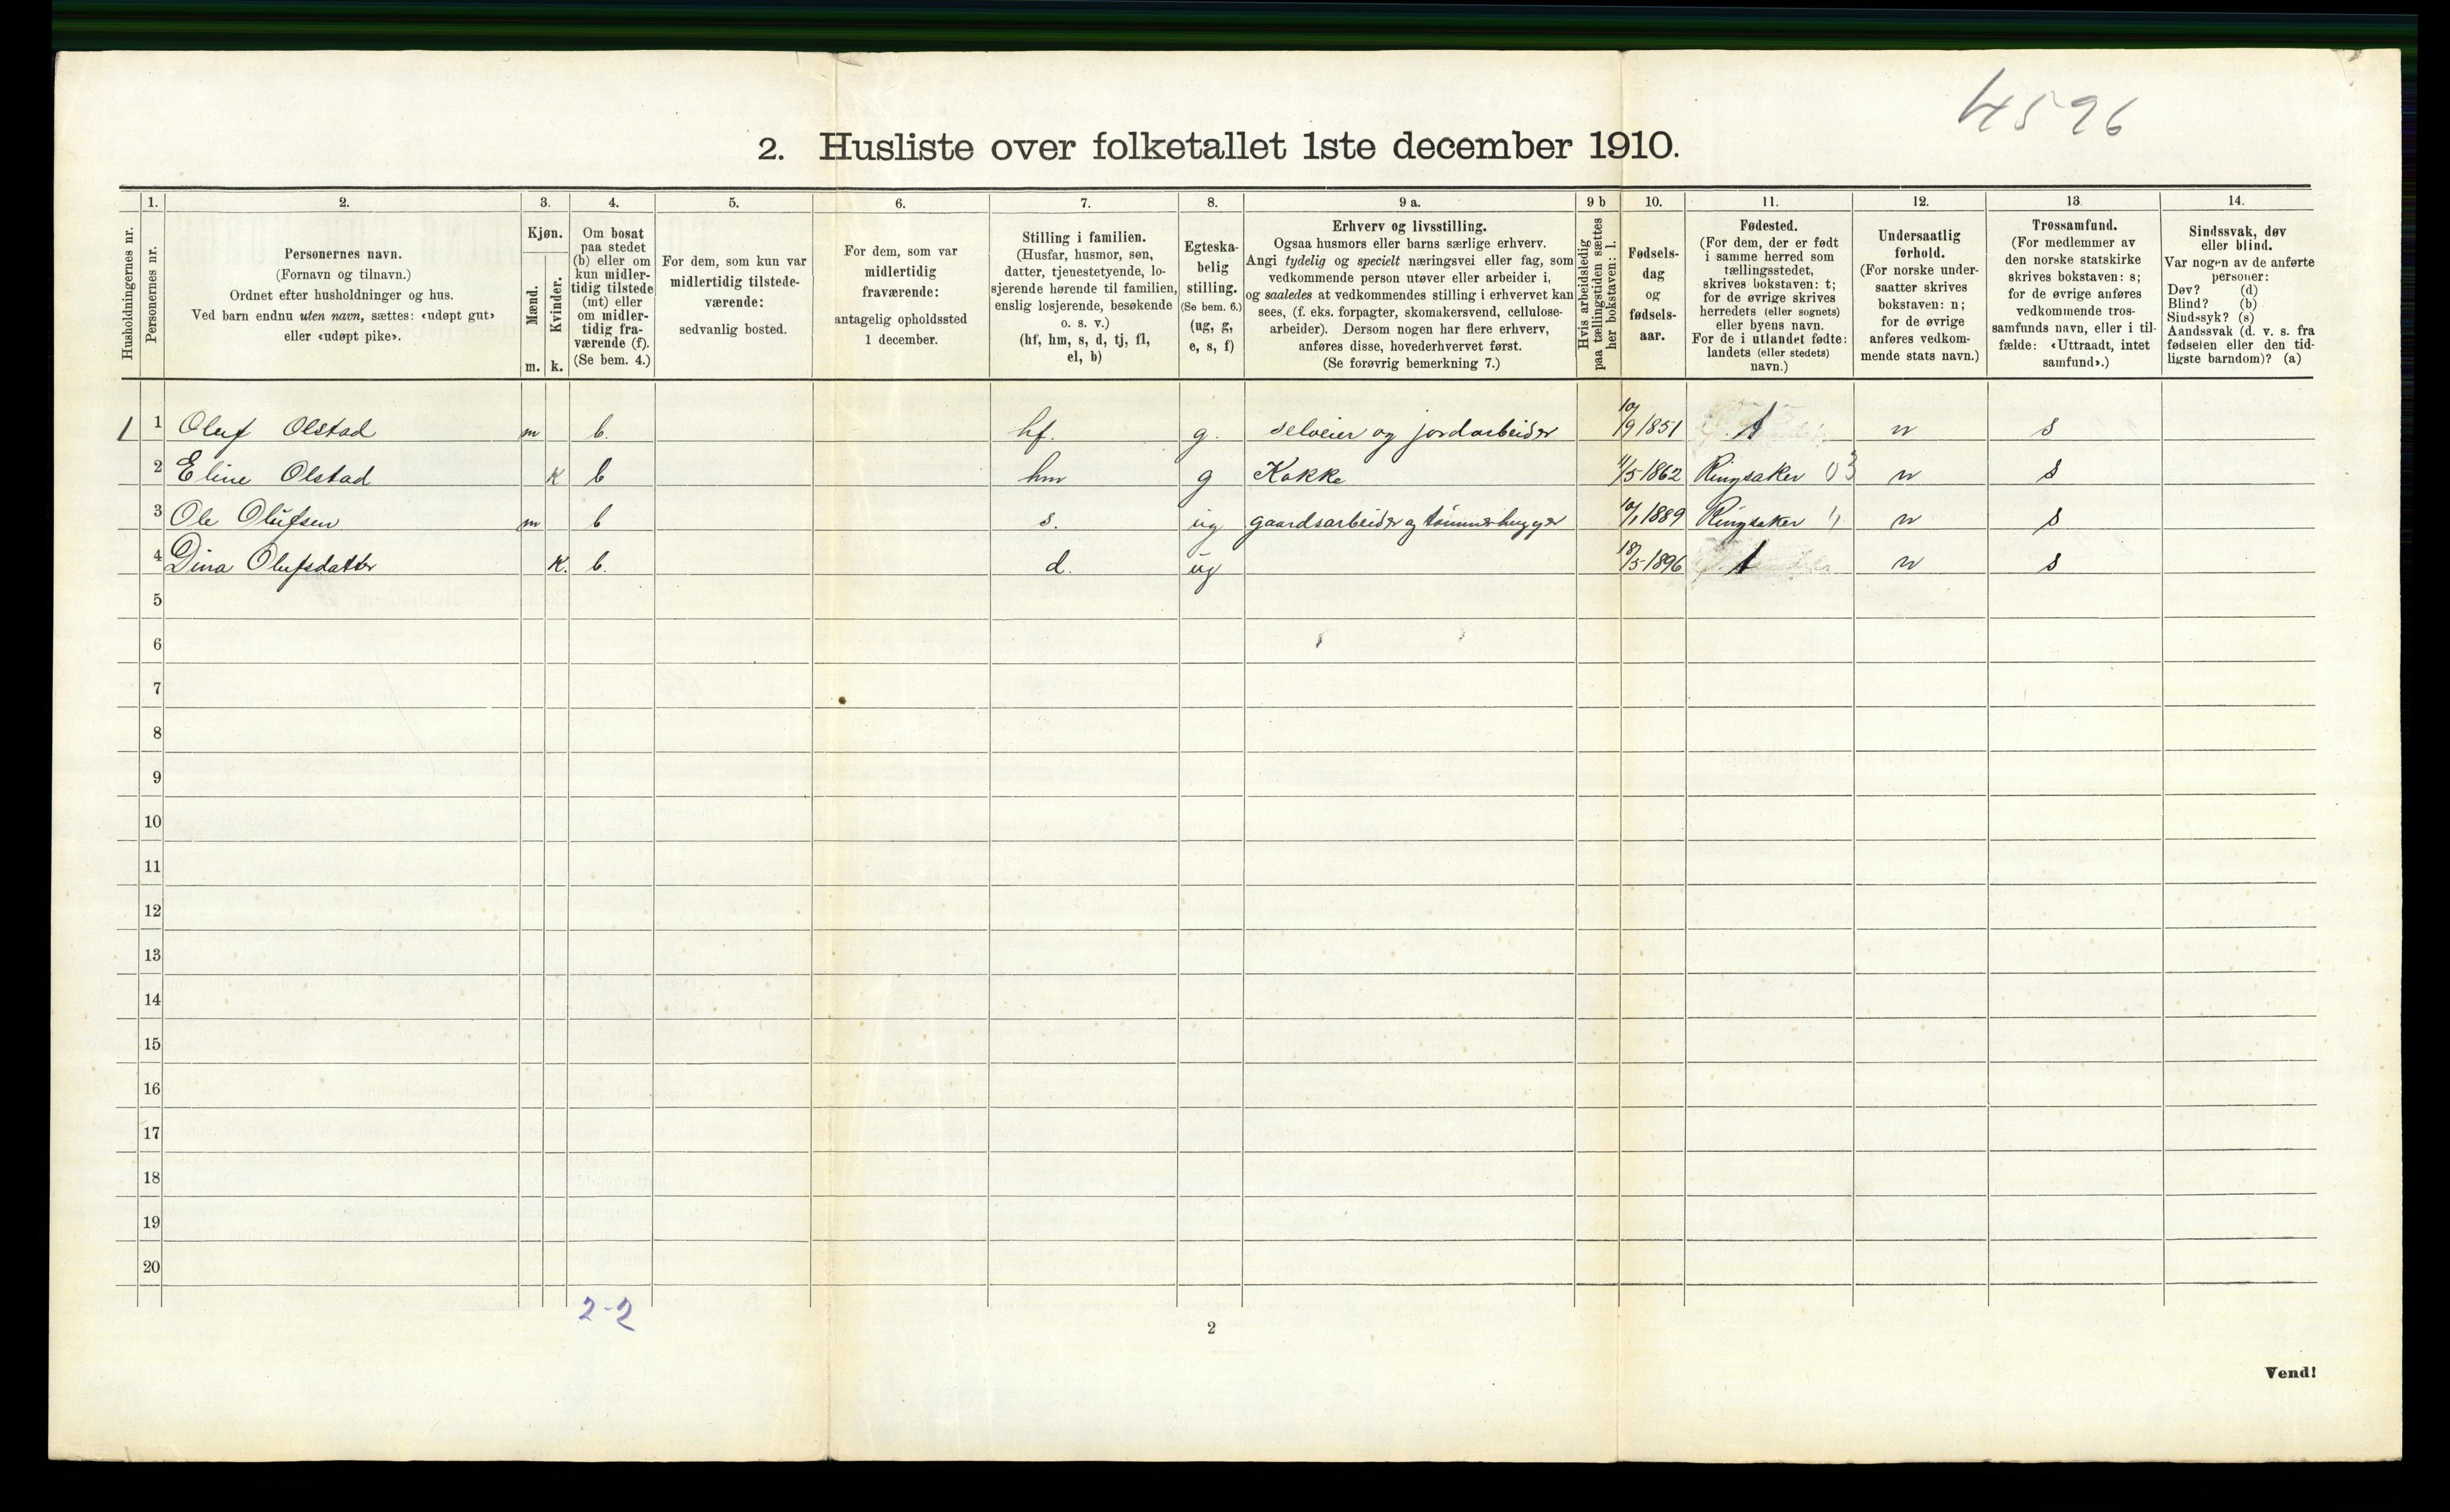 4596
2. Husliste over folketallet 1ste december 1910.
Husholdningernes nr.
1.
Personernes nr.
2.
Personernes navn.
(Fornavn og tilnavn.)
Ordnet efter husholdninger og hus.
Ved barn endnu uten navn, sættes: «udøpt gut»
eller «udøpt pike».
3.
Kjøn.
Mænd.
Kvinder.
m. k.
4.
Om bosat
paa stedet
(b) eller om
kun midler-
tidig tilstede
(mt) eller
om midler-
tidig fra-
værende (f).
(Se bem. 4.)
5.
For dem, som kun var
midlertidig tilstede-
værende:
sedvanlig bosted.
6.
For dem, som var
midlertidig
fraværende:
antagelig opholdssted
1 december.
7.
Stilling i familien.
(Husfar, husmor, søn,
datter, tjenestetyende, lo-
sjerende hørende til familien,
enslig losjerende, besøkende
o. s. v.)
(hf, hm, s, d, tj, fl,
el, b)
8.
Egteska-
belig
stilling.
(Se bem. 6.)
(ug, g,
e, s, f)
9 a.
Erhverv og livsstilling.
Ogsaa husmors eller barns særlige erhverv.
Angi tydelig og specielt næringsvei eller fag, som
vedkommende person utøver eller arbeider i,
og saaledes at vedkommendes stilling i erhvervet kan
sees, (f. eks. forpagter, skomakersvend, cellulose-
arbeider). Dersom nogen har flere erhverv,
anføres disse, hovederhvervet først.
(Se forøvrig bemerkning 7.)
9 b
Hvis arbeidsledig
paa tællingstiden sættes
her bokstaven: l.
10.
Fødsels-
dag
og
fødsels-
aar.
11.
Fødested.
(For dem, der er født
i samme herred som
tællingsstedet,
skrives bokstaven: t;
for de øvrige skrives
herredets (eller sognets)
eller byens navn.
For de i utlandet fødte:
landets (eller stedets)
navn.)
12.
Undersaatlig
forhold.
(For norske under-
saatter skrives
bokstaven: n;
for de øvrige
anføres vedkom-
mende stats navn.)
13.
Trossamfund.
(For medlemmer av
den norske statskirke
skrives bokstaven: s;
for de øvrige anføres
vedkommende tros-
samfunds navn, eller i til-
fælde: «Uttraadt, intet
samfund».)
14.
Sindssvak, døv
eller blind.
Var nogen av de anførte
personer:
Døv? (d)
Blind? (b)
Sindssyk? (s)
Aandssvak (d. v. s. fra
fødselen eller den tid-
ligste barndom)? (a)
1 1 Oluf Olstad m b. hf. g. selveier og jordarbeider 10/9 1851 t n s
2 Eline Olstad k b hm g Kokke 11/5 1862 Ringsaker 03 n s
3 Ole Olufsen m b s. ug gaardsarbeider og tømmerhugger 10/1 1889 Ringsaker " n s
4 Dina Olufsdatter k. b. d. ug 18/5 1896 t n s
5
6
7
8
9
10
11
12
13
14
15
16
17
18
19
20
2-2
2
Vend!